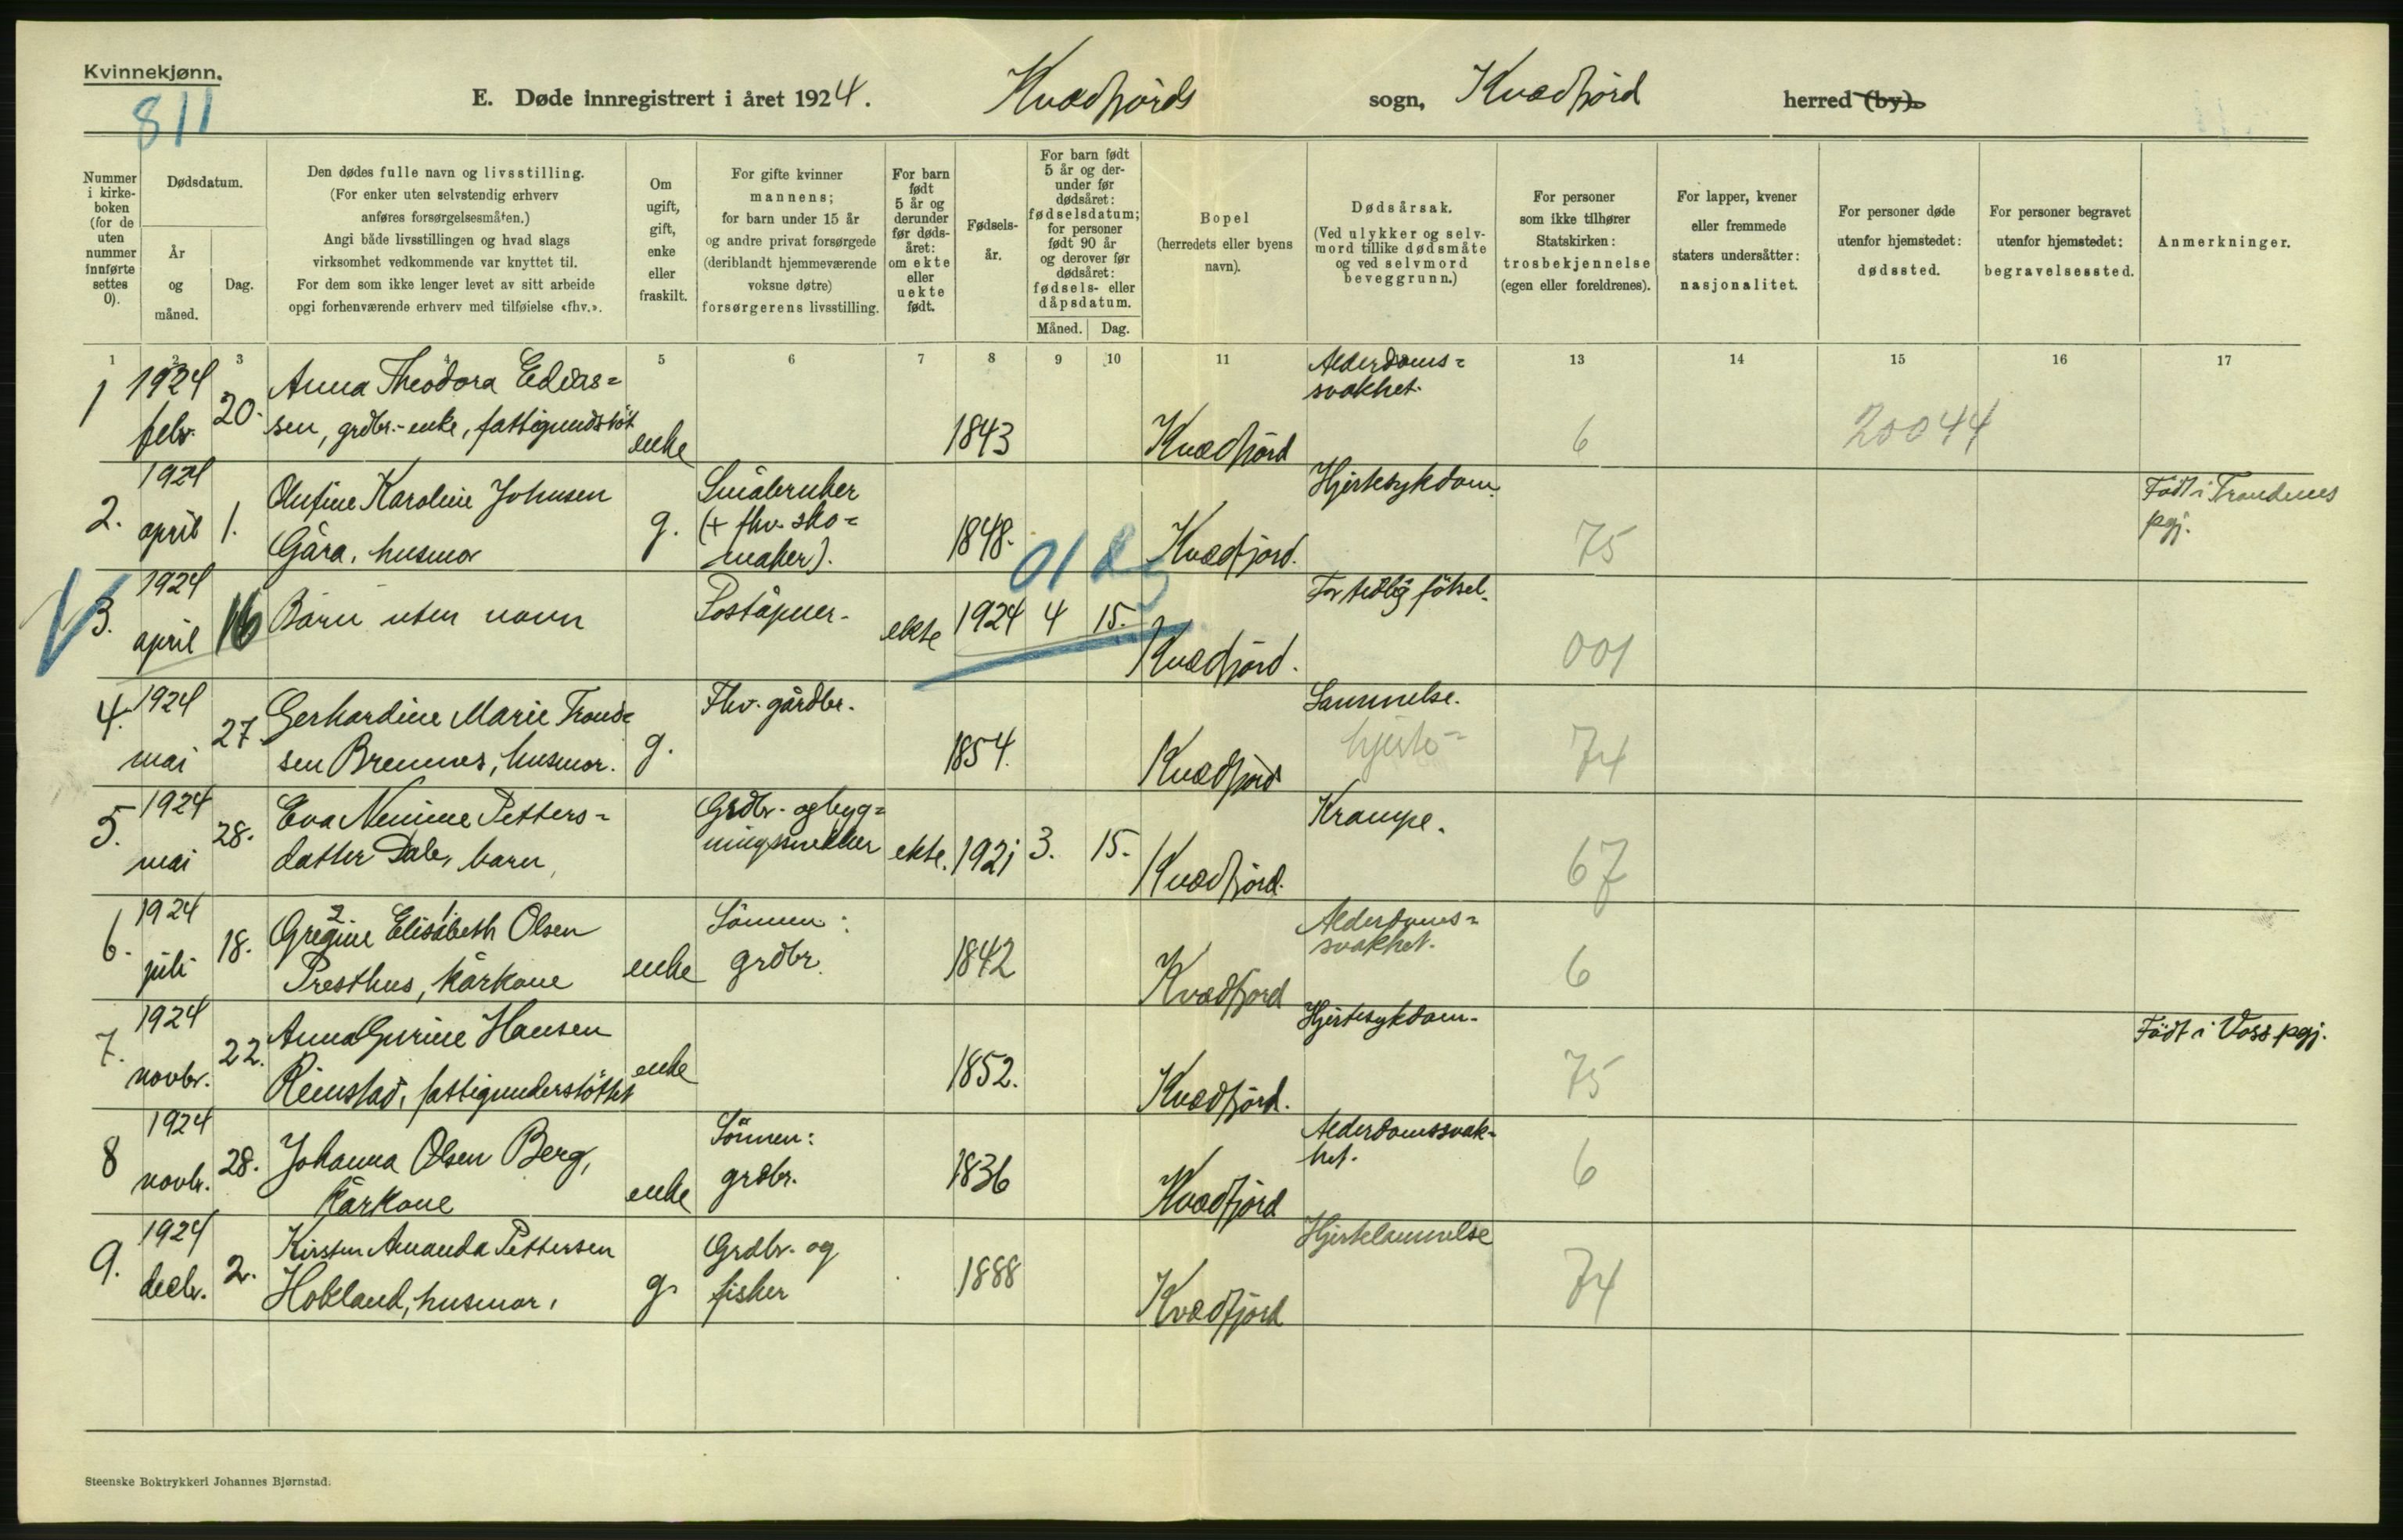 Kvinnekjønn.
811
E. Døde innregistrert i året 1924. Kvædfjords sogn, Kvædfjord herred (by).
Nummer
i kirke-
boken
(for de
uten
nummer
innførte
settes
0).
Dødsdatum.
År
og
måned.
Dag.
Den dødes fulle navn og livsstilling.
(For enker uten selvstendig erhverv
anføres forsørgelsesmåten.)
Angi både livsstillingen og hvad slags
virksomhet vedkommende var knyttet til.
For dem som ikke lenger levet av sitt arbeide
opgi forhenværende erhverv med tilføielse «fhv.».
Om
ugift,
gift,
enke
eller
fraskilt.
For gifte kvinner
mannens;
for barn under 15 år
og andre privat forsørgede
(deriblandt hjemmeværende
voksne døtre)
forsørgerens livsstilling.
For barn
født
5 år og
derunder
før døds-
året:
om ekte
eller
uekte
født.
Fødsels-
år.
For barn født
5 år og der-
under før
dødsåret:
fødselsdatum;
for personer
født 90 år
og derover før
dødsåret:
fødsels- eller
dåpsdatum.
Måned. Dag.
Bopel
(herredets eller byens
navn).
Dødsårsak.
(Ved ulykker og selv-
mord tillike dødsmåte
og ved selvmord
beveggrunn.)
For personer
som ikke tilhører
Statskirken:
trosbekjennelse
(egen eller foreldrenes).
For lapper, kvener
eller fremmede
staters undersåtter:
nasjonalitet.
For personer døde
utenfor hjemstedet:
dødssted.
For personer begravet
utenfor hjemstedet:
begravelsessted.
Anmerkninger.
1 2 3 4 5 6 7 8 9 10 11 13 14 15 16 17
1
1924
febr.
20.
Anna Theodora Edias=
sen, grdbr.-enke, fattigundstöt
enke
1843
Kvædfjord
Alderdoms=
svakhet.
6
20044
2.
1924
april
1.
Olufine Karoline Johnsen
Gåra, husmor
g.
Småbruker
(+ fhv. sko=
maker).
1848.
Kvædfjord.
Hjertesykdom.
75
Födt i Trondenes
pgj.
3.
1924
april
16
Barn uten navn
Poståpner.
ekte
1924 4 15.
Kvædfjord.
For tidlig fötsel.
001
4.
1924
mai
27.
Gerhardine Marie Trond=
sen Bremnes, husmor.
g.
Fhv. gårdbr.
1854.
Kvædfjord
Lammelse.
hjerte-
74
5.
1924
mai
28.
Eva Petters-
datter Dale, barn,
Grdbr. og byg=
ningssnekker
ekte.
1921 3. 15.
Kvædfjord.
Krampe.
67
6.
1924
juli
18.
2 1
Gregine Elisabeth Olsen
Presthus, kårkone
enke
Sönnen:
grdbr.
1842
Kvædfjord
Alderdoms=
svakhet.
6
7.
1924
novbr.
22.
Anna Gurine Hansen
Reinstad, fattigunderstöttet
enke
1852.
Kvædfjord.
Hjertesykdom.
75
Födt i Voss pgj.
8
1924
novbr.
28.
Johanna Olsen Berg,
kårkone
enke
Sönnen:
grdbr.
1836
Kvædfjord
Alderdomssvak-
het.
6
9.
1924
decbr.
2.
Kirsten Amanda Pettersen
Hokland, husmor.
g.
Grdbr. og
fisker
1888
Kvædfjord
Hjertelammelse
74
Steenske Boktrykkeri Johannes Bjørnstad.